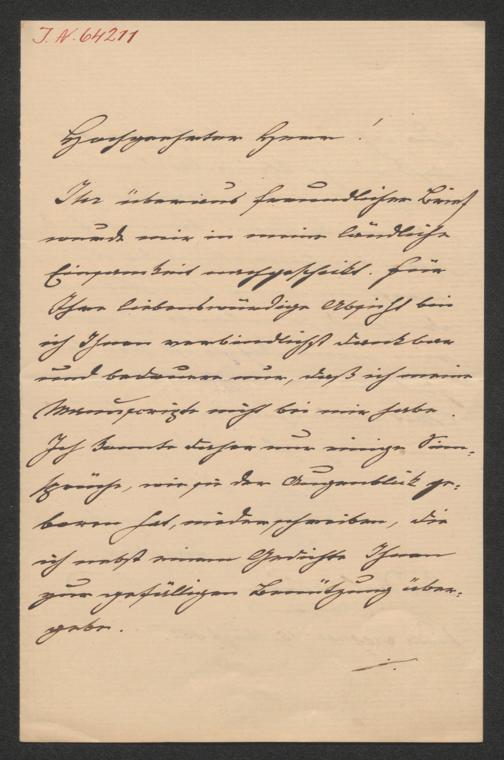 J. N. 64211
Hochgeehrter Herr!
Ihr überaus freundlicher Brief
wurde mir in meine ländliche
Einsamkeit nachgeschickt. Für
Ihre liebenswürdige Absicht bin
ich Ihnen verbindlichst dankbar
und bedauere nur, daß ich meine
Manuscripte nicht bei mir habe.
Ich konnte daher nur einige Sinn-
sprüche, wie sie der Augenblick ge-
boren hat, niederschreiben, die
ich nebst einem Gedichte Ihnen
zur gefälligen Benützung über-
gebe.